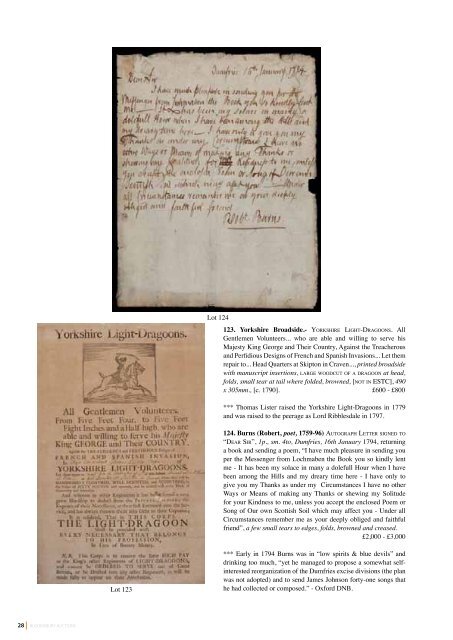 Dumfries 16th January 1794
Dear Sir
I have much pleasure in sending you per the
Messenger from Lochmaben the Book you so kindly lent
me - It has been my solace in many a
dolefull Hour when I have been among the Hills and
my dreary time here - I have only to give you my
Thanks as under my Circumstances I have no
other Ways or Means of making any Thanks or
shewing my for Kindness to me, unless
you accept the enclosed Poem or Song of Our own
Scottish Soil which may affect you - Under
all Circumstances remember me as your deeply
obliged and faithful friend
Robt. Burns
Lot 124
Yorkshire Light-Dragoons.
All Gentlemen Volunteers,
From Five Feet Four, to Five Feet
Eight Inches and a Half high, who are
able and willing to serve his Majesty
King GEORGE and Their COUNTRY,
FRENCH AND SPANISH INVASION,
YORKSHIRE LIGHT-DRAGOONS,
THE LIGHT-DRAGOON
EVERY NECESSARY THAT BELONGS
TO HIS PROFESSION,
Lot 123
123. Yorkshire Broadside.- Yorkshire Light-Dragoons. All
Gentlemen Volunteers... who are able and willing to serve his
Majesty King George and Their Country, Against the Treacherous
and Perfidious Designs of French and Spanish Invasions... Let them
repair to... Head Quarters at Skipton in Craven..., printed broadside
with manuscript insertions, large woodcut of a dragoon at head,
folds, small tear at tail where folded, browned, [not in ESTC], 490
x 305mm., [c. 1790]. £600 - £800
*** Thomas Lister raised the Yorkshire Light-Dragoons in 1779
and was raised to the peerage as Lord Ribblesdale in 1797.
124. Burns (Robert, poet, 1759-96) Autograph Letter signed to
"Dear Sir", 1p., sm. 4to, Dumfries, 16th January 1794, returning
a book and sending a poem, "I have much pleasure in sending you
per the Messenger from Lochmaben the Book you so kindly lent
me - It has been my solace in many a dolefull Hour when I have
been among the Hills and my dreary time here - I have only to
give you my Thanks as under my Circumstances I have no other
Ways or Means of making any Thanks or shewing my Solitude
for your Kindness to me, unless you accept the enclosed Poem or
Song of Our own Scottish Soil which may affect you - Under all
Circumstances remember me as your deeply obliged and faithful
friend", a few small tears to edges, folds, browned and creased.
£2,000 - £3,000
*** Early in 1794 Burns was in "low spirits & blue devils" and
drinking too much, "yet he managed to propose a somewhat self-
interested reorganization of the Dumfries excise divisions (the plan
was not adopted) and to send James Johnson forty-one songs that
he had collected or composed." - Oxford DNB.
28